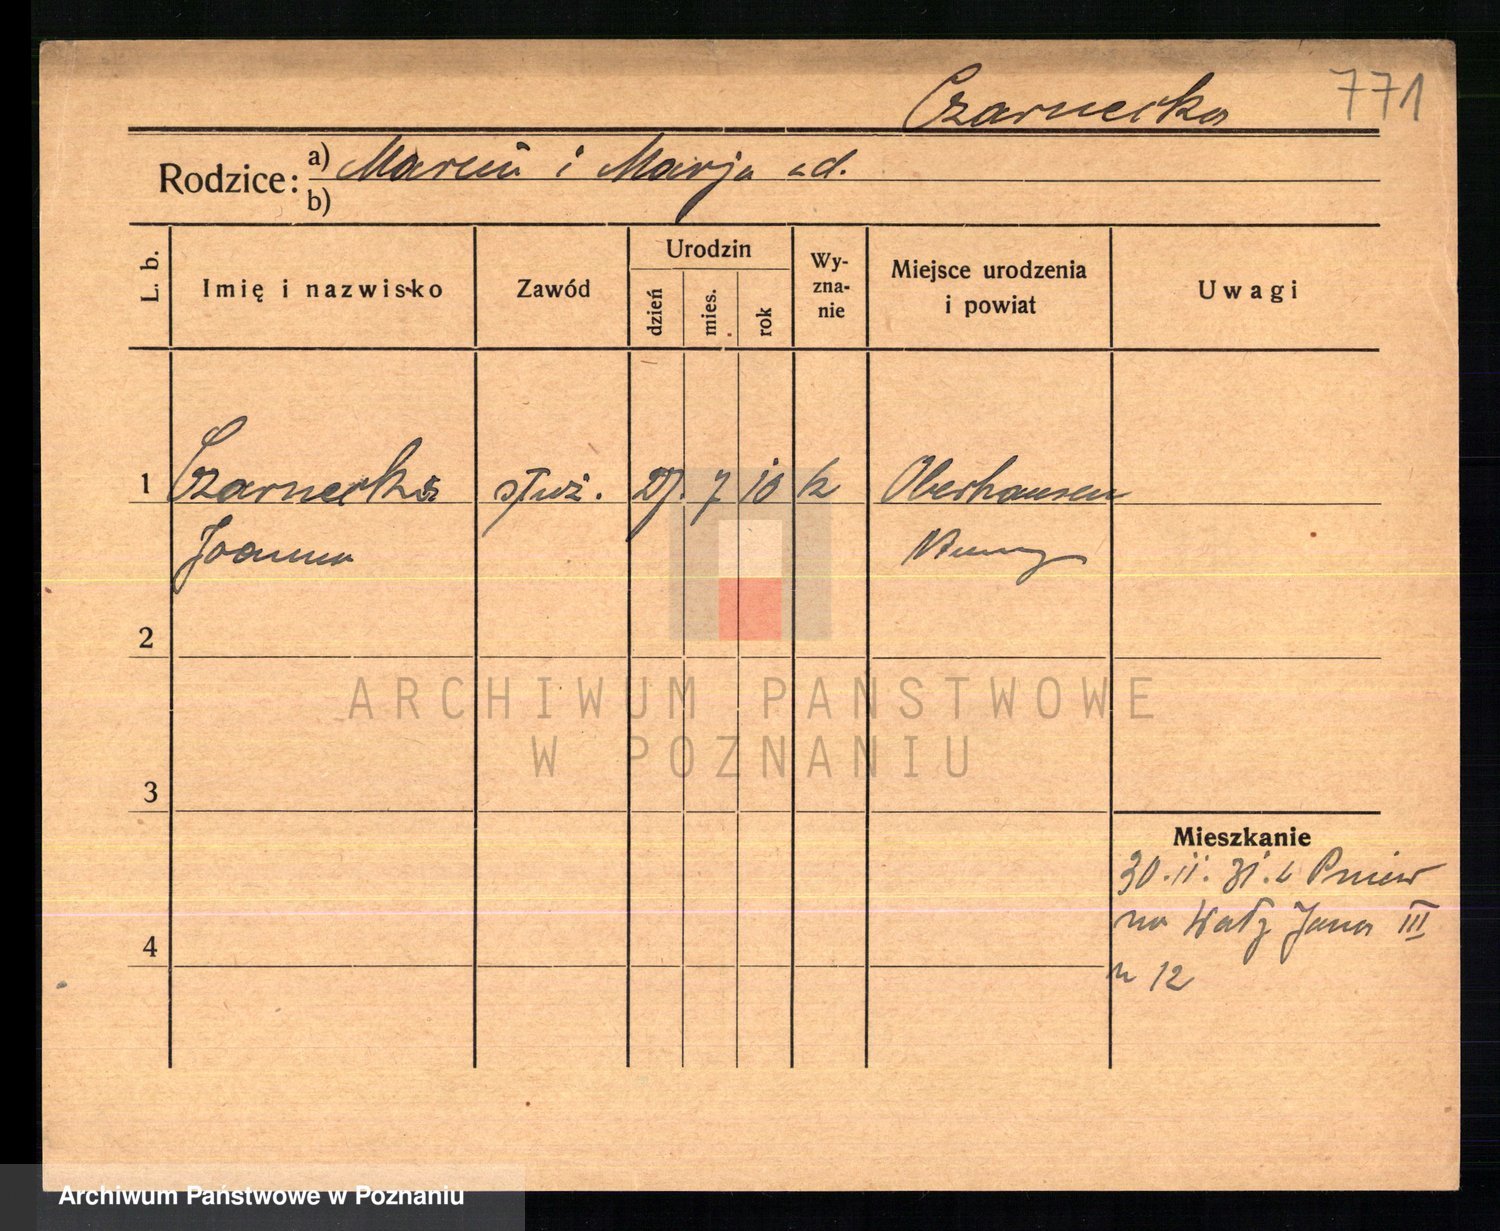 Czarnecka 771
Rodzice: a) Marcin i Marja
b)
L. b. Imię i nazwisko Zawód Urodzin dzień mies. rok Wyznanie Miejsce urodzenia i powiat Uwagi
1 Czarnecka służ. 27. 7 10 k Oberhausen
Joanna Niemcy
2
ARCHIWUM PAŃSTWOWE
W POZNANIU
3
Mieszkanie
30.11.31. z Pniew
na Wały Jana III
4
n 12
Archiwum Państwowe w Poznaniu